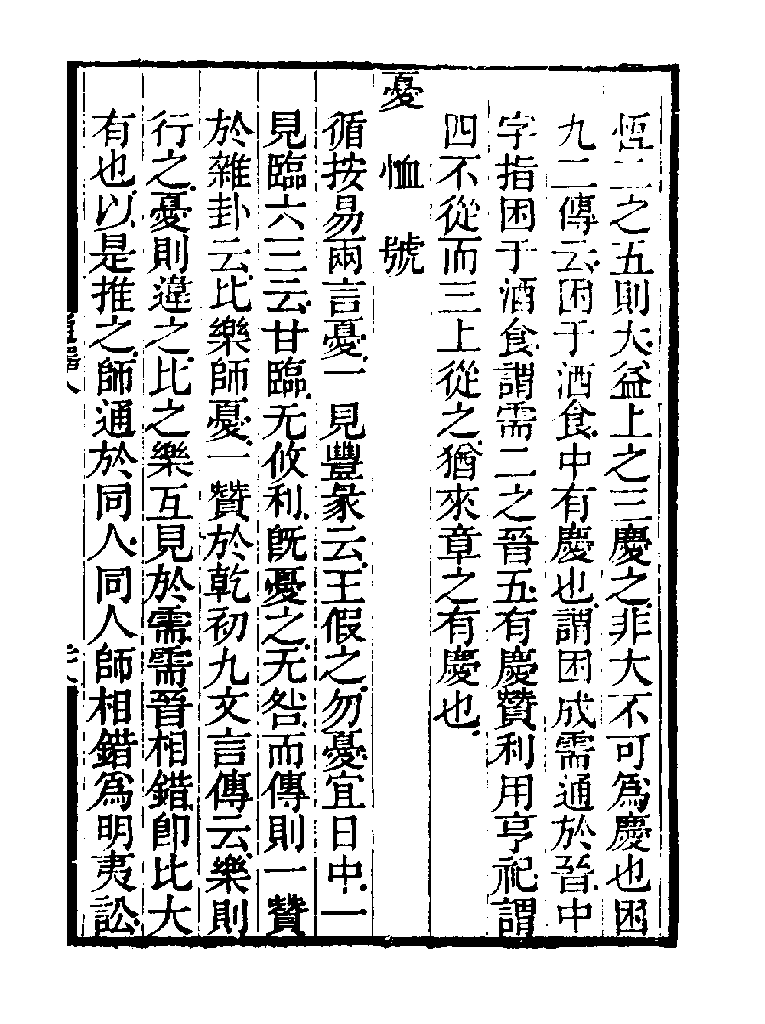 恆二之五則大益上之三慶之非大不可爲慶也困
九二傳云困于酒食中有慶也謂困成需通於晉中
字指困于酒食謂需二之晉五有慶贊利用亨祀謂
四不從而三上從之猶來章之有慶也
憂恤號
循按易兩言憂一見豐彖云王假之勿憂宜日中一
見臨六三云甘臨无攸利旣憂之无咎而傳則一贊
於雜卦云比樂師憂一贊於乾初九文言傳云樂則
行之憂則違之比之樂互見於需需晉相錯卽比大
有也以是推之師通於同人同人師相錯爲明夷訟